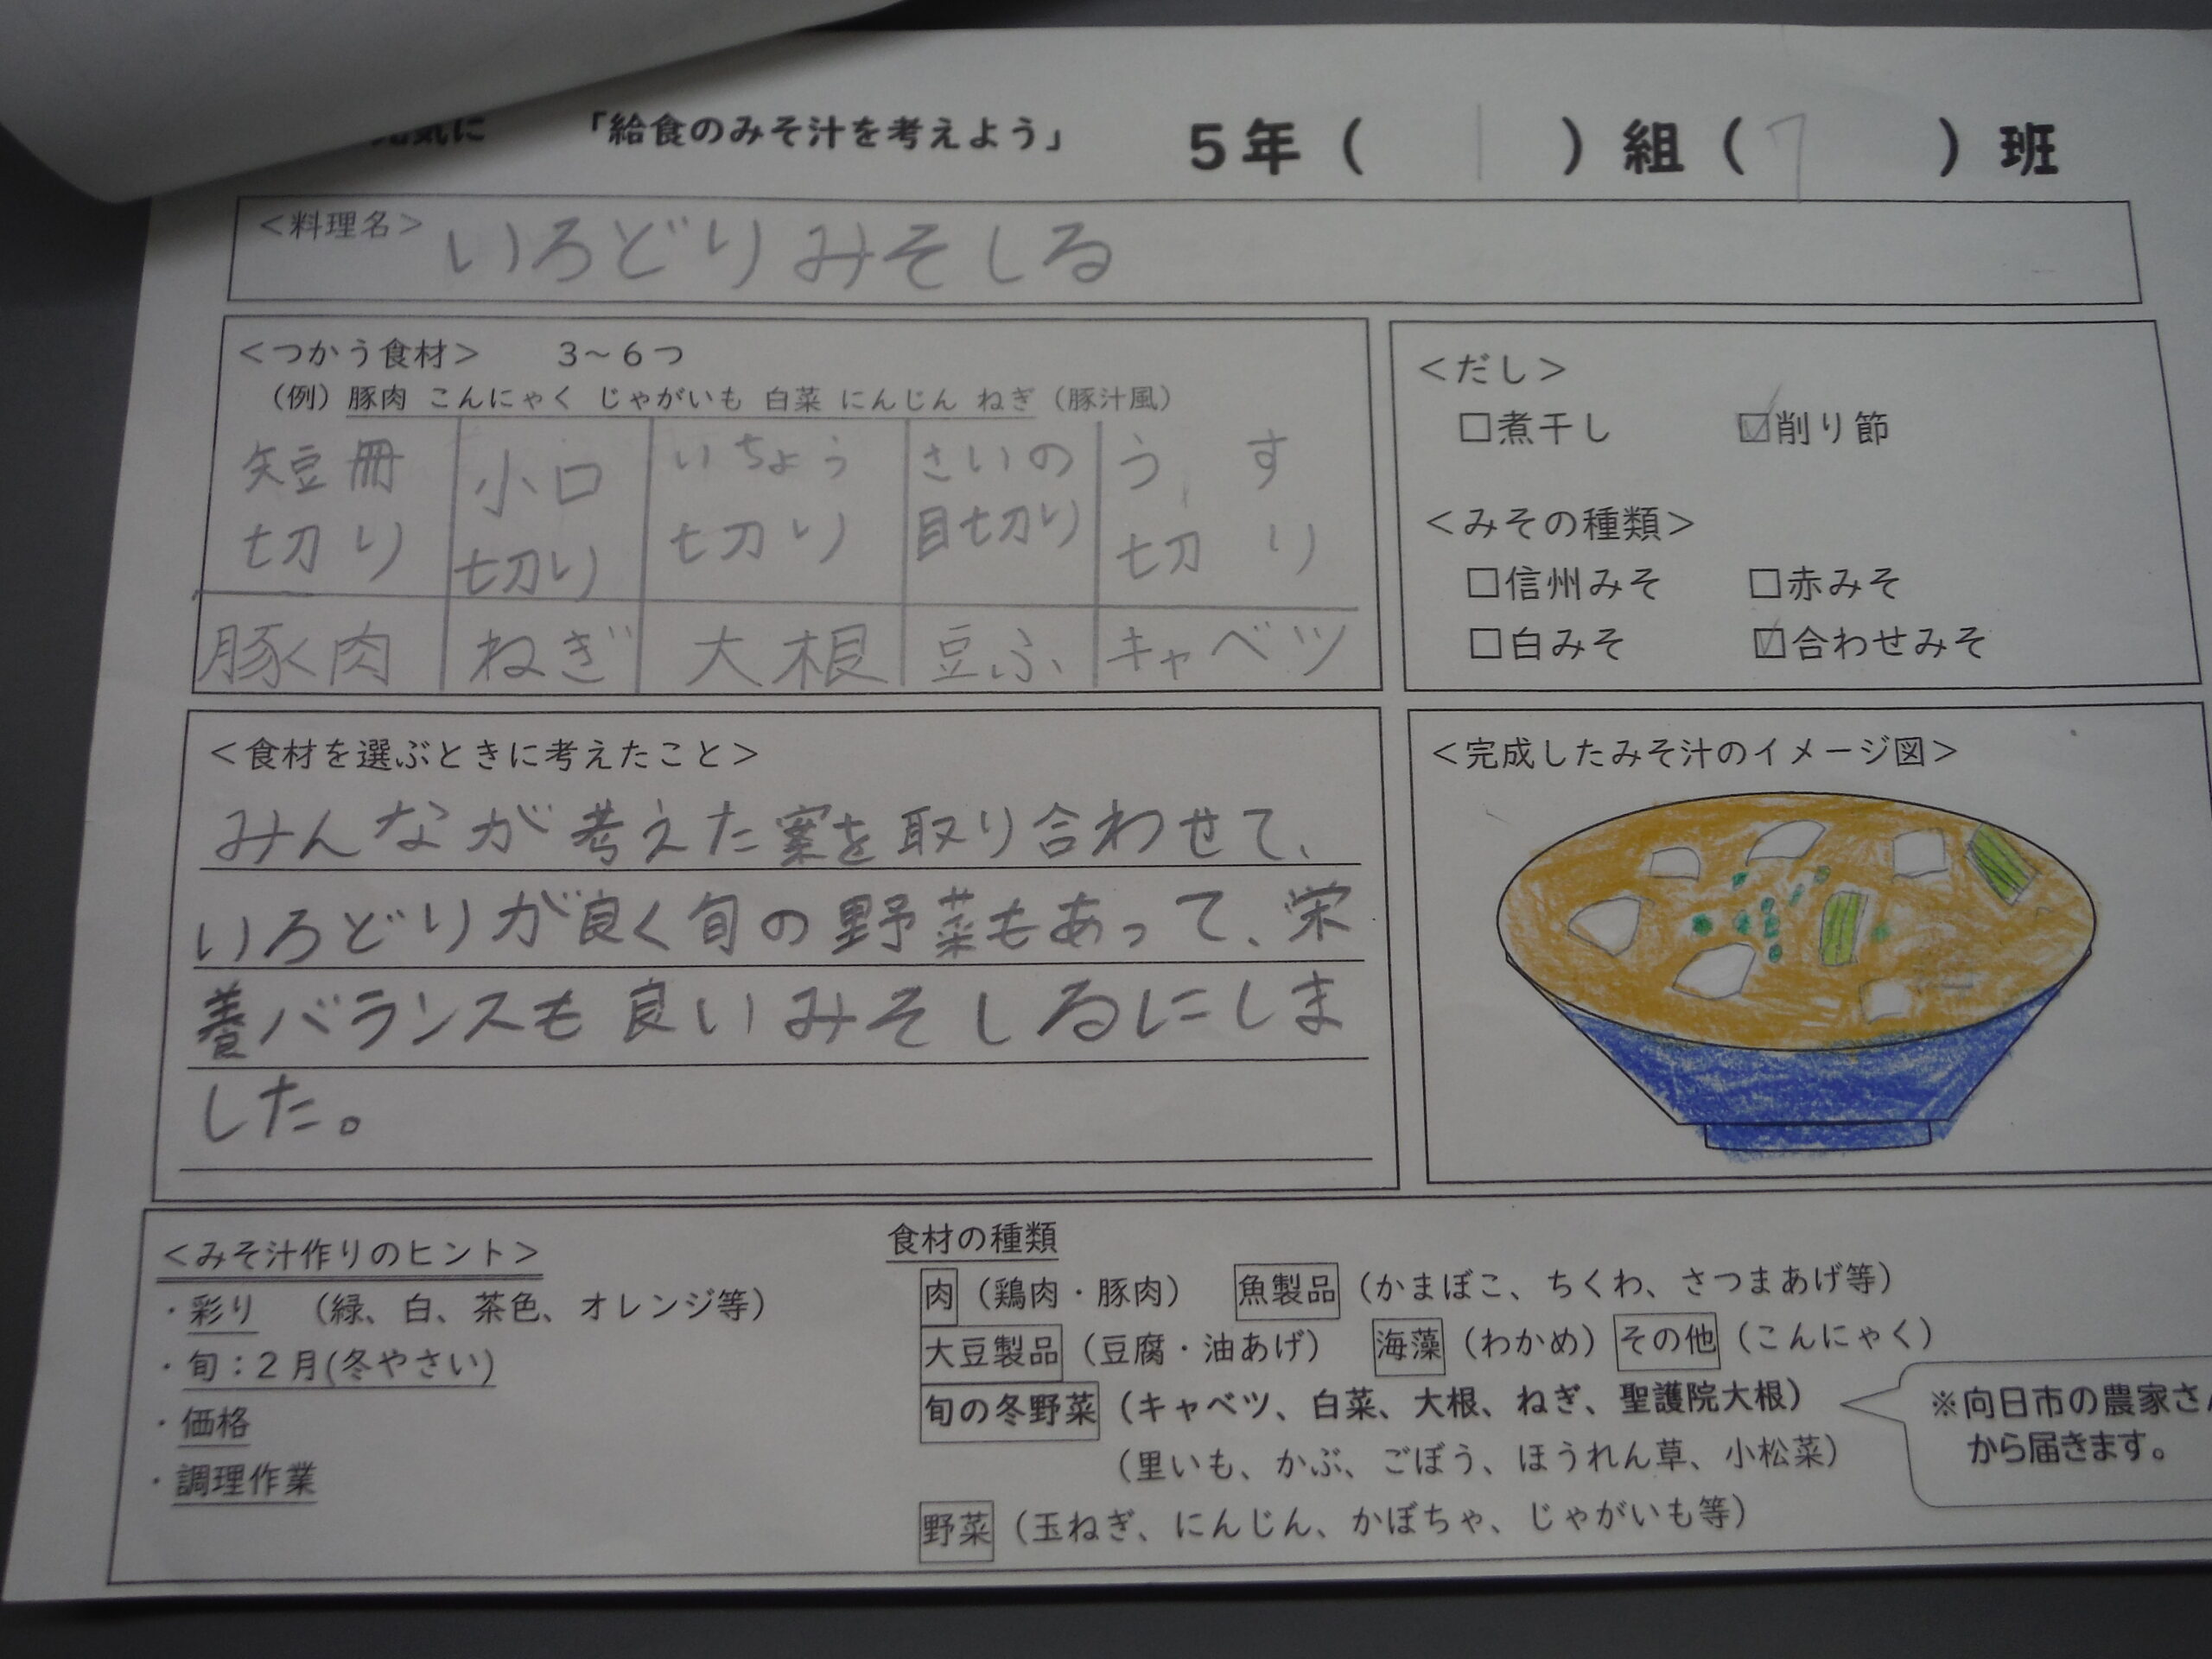 元気に 「給食のみそ汁を考えよう」 5年( 1 )組( 7 )班
＜料理名＞ いろどりみそしる
＜つかう食材＞ 3～6つ
（例）豚肉 こんにゃく じゃがいも 白菜 にんじん ねぎ（豚汁風）
短冊切り 小口切り いちょう切り さいの目切り うす切り
豚肉 ねぎ 大根 豆ふ キャベツ
＜だし＞
□煮干し ☑削り節
＜みその種類＞
□信州みそ □赤みそ
□白みそ ☑合わせみそ
＜食材を選ぶときに考えたこと＞
みんなが考えた案を取り合わせて、
いろどりが良く旬の野菜もあって、栄
養バランスも良いみそしるにしま
した。
＜完成したみそ汁のイメージ図＞
＜みそ汁作りのヒント＞
・彩り （緑、白、茶色、オレンジ等）
・旬：2月(冬やさい)
・価格
・調理作業
食材の種類
肉（鶏肉・豚肉） 魚製品（かまぼこ、ちくわ、さつまあげ等）
大豆製品（豆腐・油あげ） 海藻（わかめ） その他（こんにゃく）
旬の冬野菜（キャベツ、白菜、大根、ねぎ、聖護院大根）
（里いも、かぶ、ごぼう、ほうれん草、小松菜）
野菜（玉ねぎ、にんじん、かぼちゃ、じゃがいも等）
※向日市の農家さん
から届きます。